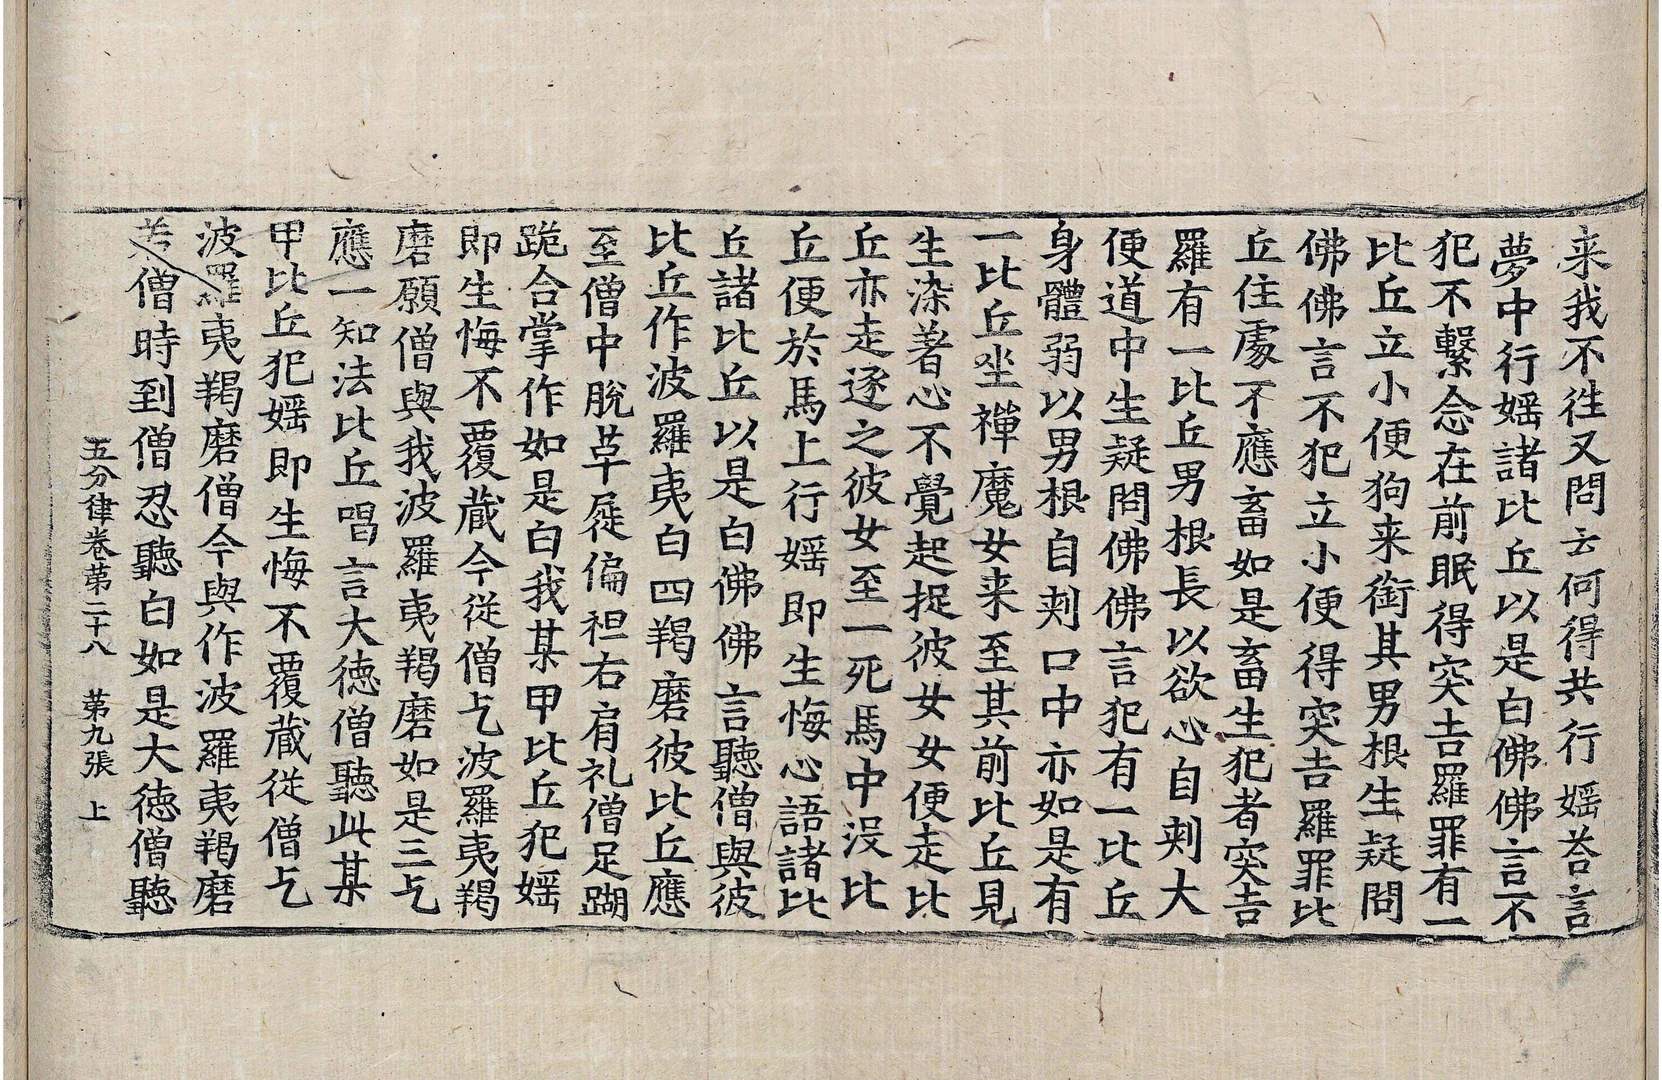 来我不往又問云何得共行婬荅言
夢中行婬諸比丘以是白佛佛言不
犯不繫念在前眠得突吉羅罪有一
比丘立小便狗来銜其男根生疑問
佛佛言不犯立小便得突吉羅罪比
丘住處不應畜如是畜生犯者突吉
羅有一比丘男根長以欲心自刺大
便道中生疑問佛佛言犯有一比丘
身體弱以男根自刺口中亦如是有
一比丘坐禪魔女来至其前比丘見
生染著心不覺起捉彼女女便走比
丘亦走逐之彼女至一死馬中沒比
丘便於馬上行婬即生悔心語諸比
丘諸比丘以是白佛佛言聽僧與彼
比丘作波羅夷白四羯磨彼比丘應
至僧中脫草屣偏袒右肩礼僧足𨁼
跪合掌作如是白我某甲比丘犯婬
即生悔不覆藏今從僧乞波羅夷羯
磨願僧與我波羅夷羯磨如是三乞
應一知法比丘唱言大德僧聽此某
甲比丘犯婬即生悔不覆藏從僧乞
波羅夷羯磨僧今與作波羅夷羯磨
若僧時到僧忍聽白如是大德僧聽
五分律卷第二十八 第九張 上